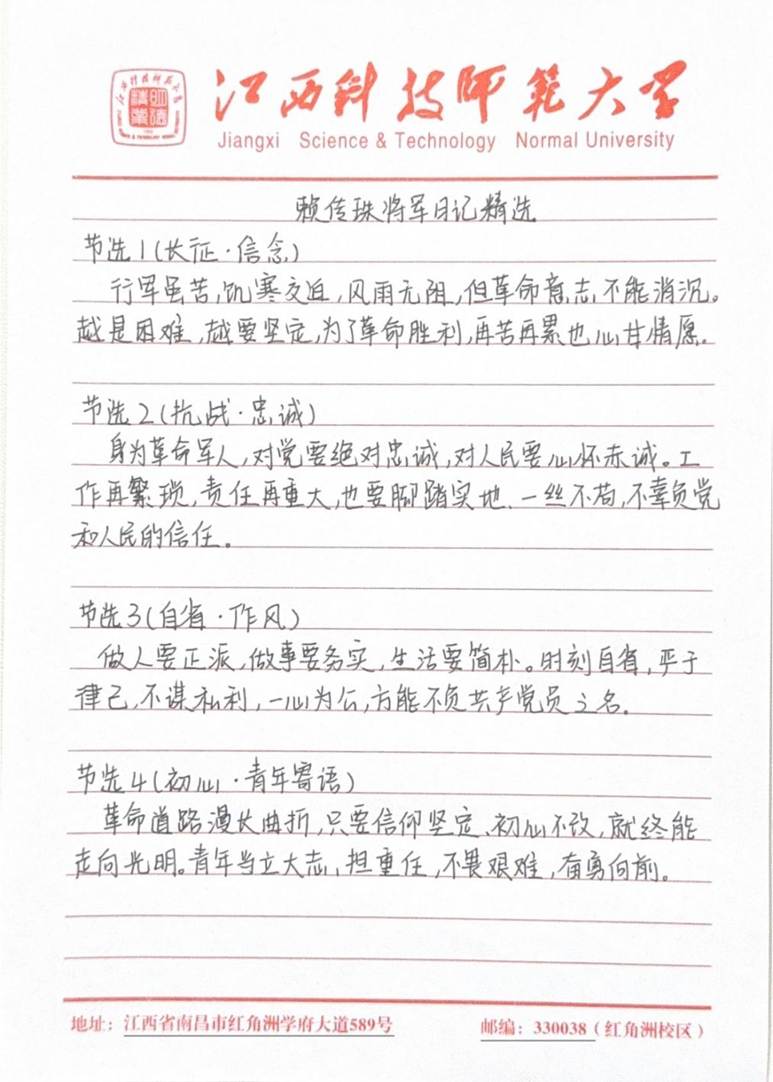 江西科技师范大学
Jiangxi Science & Technology Normal University
赖传珠将军日记精选
节选1(长征·信念)
行军虽苦,饥寒交迫,风雨无阻,但革命意志不能消沉。
越是困难,越要坚定,为了革命胜利,再苦再累也心甘情愿。
节选2(抗战·忠诚)
身为革命军人,对党要绝对忠诚,对人民要心怀赤诚。工
作再繁琐,责任再重大,也要脚踏实地、一丝不苟,不辜负党
和人民的信任。
节选3(自省·作风)
做人要正派,做事要务实,生活要简朴。时刻自省,严于
律己,不谋私利,一心为公,方能不负共产党员之名。
节选4(初心·青年寄语)
革命道路漫长曲折,只要信仰坚定、初心不改,就终能
走向光明。青年当立大志、担重任,不畏艰难,奋勇向前。
地址:江西省南昌市红角洲学府大道589号
邮编:330038(红角洲校区)